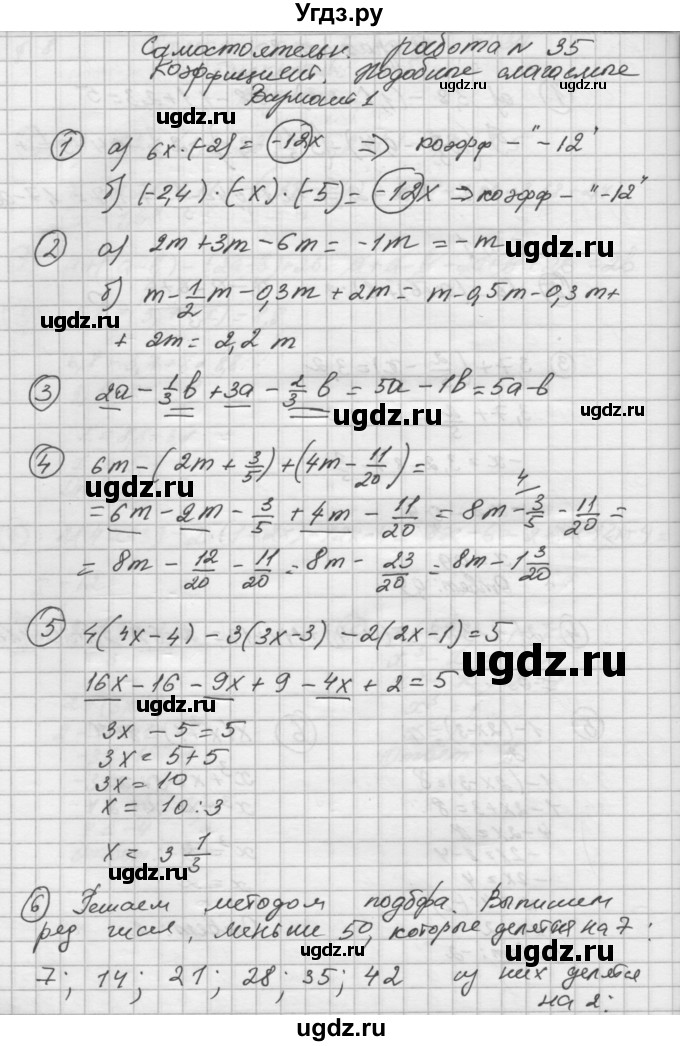 Угдз.ру
Самостоятельн. работа № 35
Коэффициент. Подобные слагаемые
ugdz.ru
Вариант 1
ugdz.ru
① а) 6x·(-2) = -12x ⇒ коэфф - "-12"
б) (-2,4)·(-x)·(-5) = -12x ⇒ коэфф - "-12"
② а) 2m + 3m - 6m = -1m = -m
ugdz.ru
б) m - 1/2 m - 0,3m + 2m = m - 0,5m - 0,3m +
ugdz.ru
+ 2m = 2,2 m
③ 2a - 1/3 b + 3a - 2/3 b = 5a - 1b = 5a - b
ugdz.ru
ugdz.ru
④ 6m - (2m + 3/5) + (4m - 11/20) =
ugdz.ru
= 6m - 2m - 3/5 + 4m - 11/20 = 8m - 3/5 4/ - 11/20 =
ugdz.ru
= 8m - 12/20 - 11/20 = 8m - 23/20 = 8m - 1 3/20
⑤ 4(4x - 4) - 3(3x - 3) - 2(2x - 1) = 5
ugdz.ru
16x - 16 - 9x + 9 - 4x + 2 = 5
ugdz.ru
3x - 5 = 5
3x = 5 + 5
ugdz.ru
3x = 10
x = 10 : 3
x = 3 1/3
ugdz.ru
⑥ Решаем методом подбора. Выпишем
ugdz.ru
ряд чисел, меньше 50, которые делятся на 7:
7; 14; 21; 28; 35; 42 а) из них делятся
ugdz.ru
на 2:
ugdz.ru